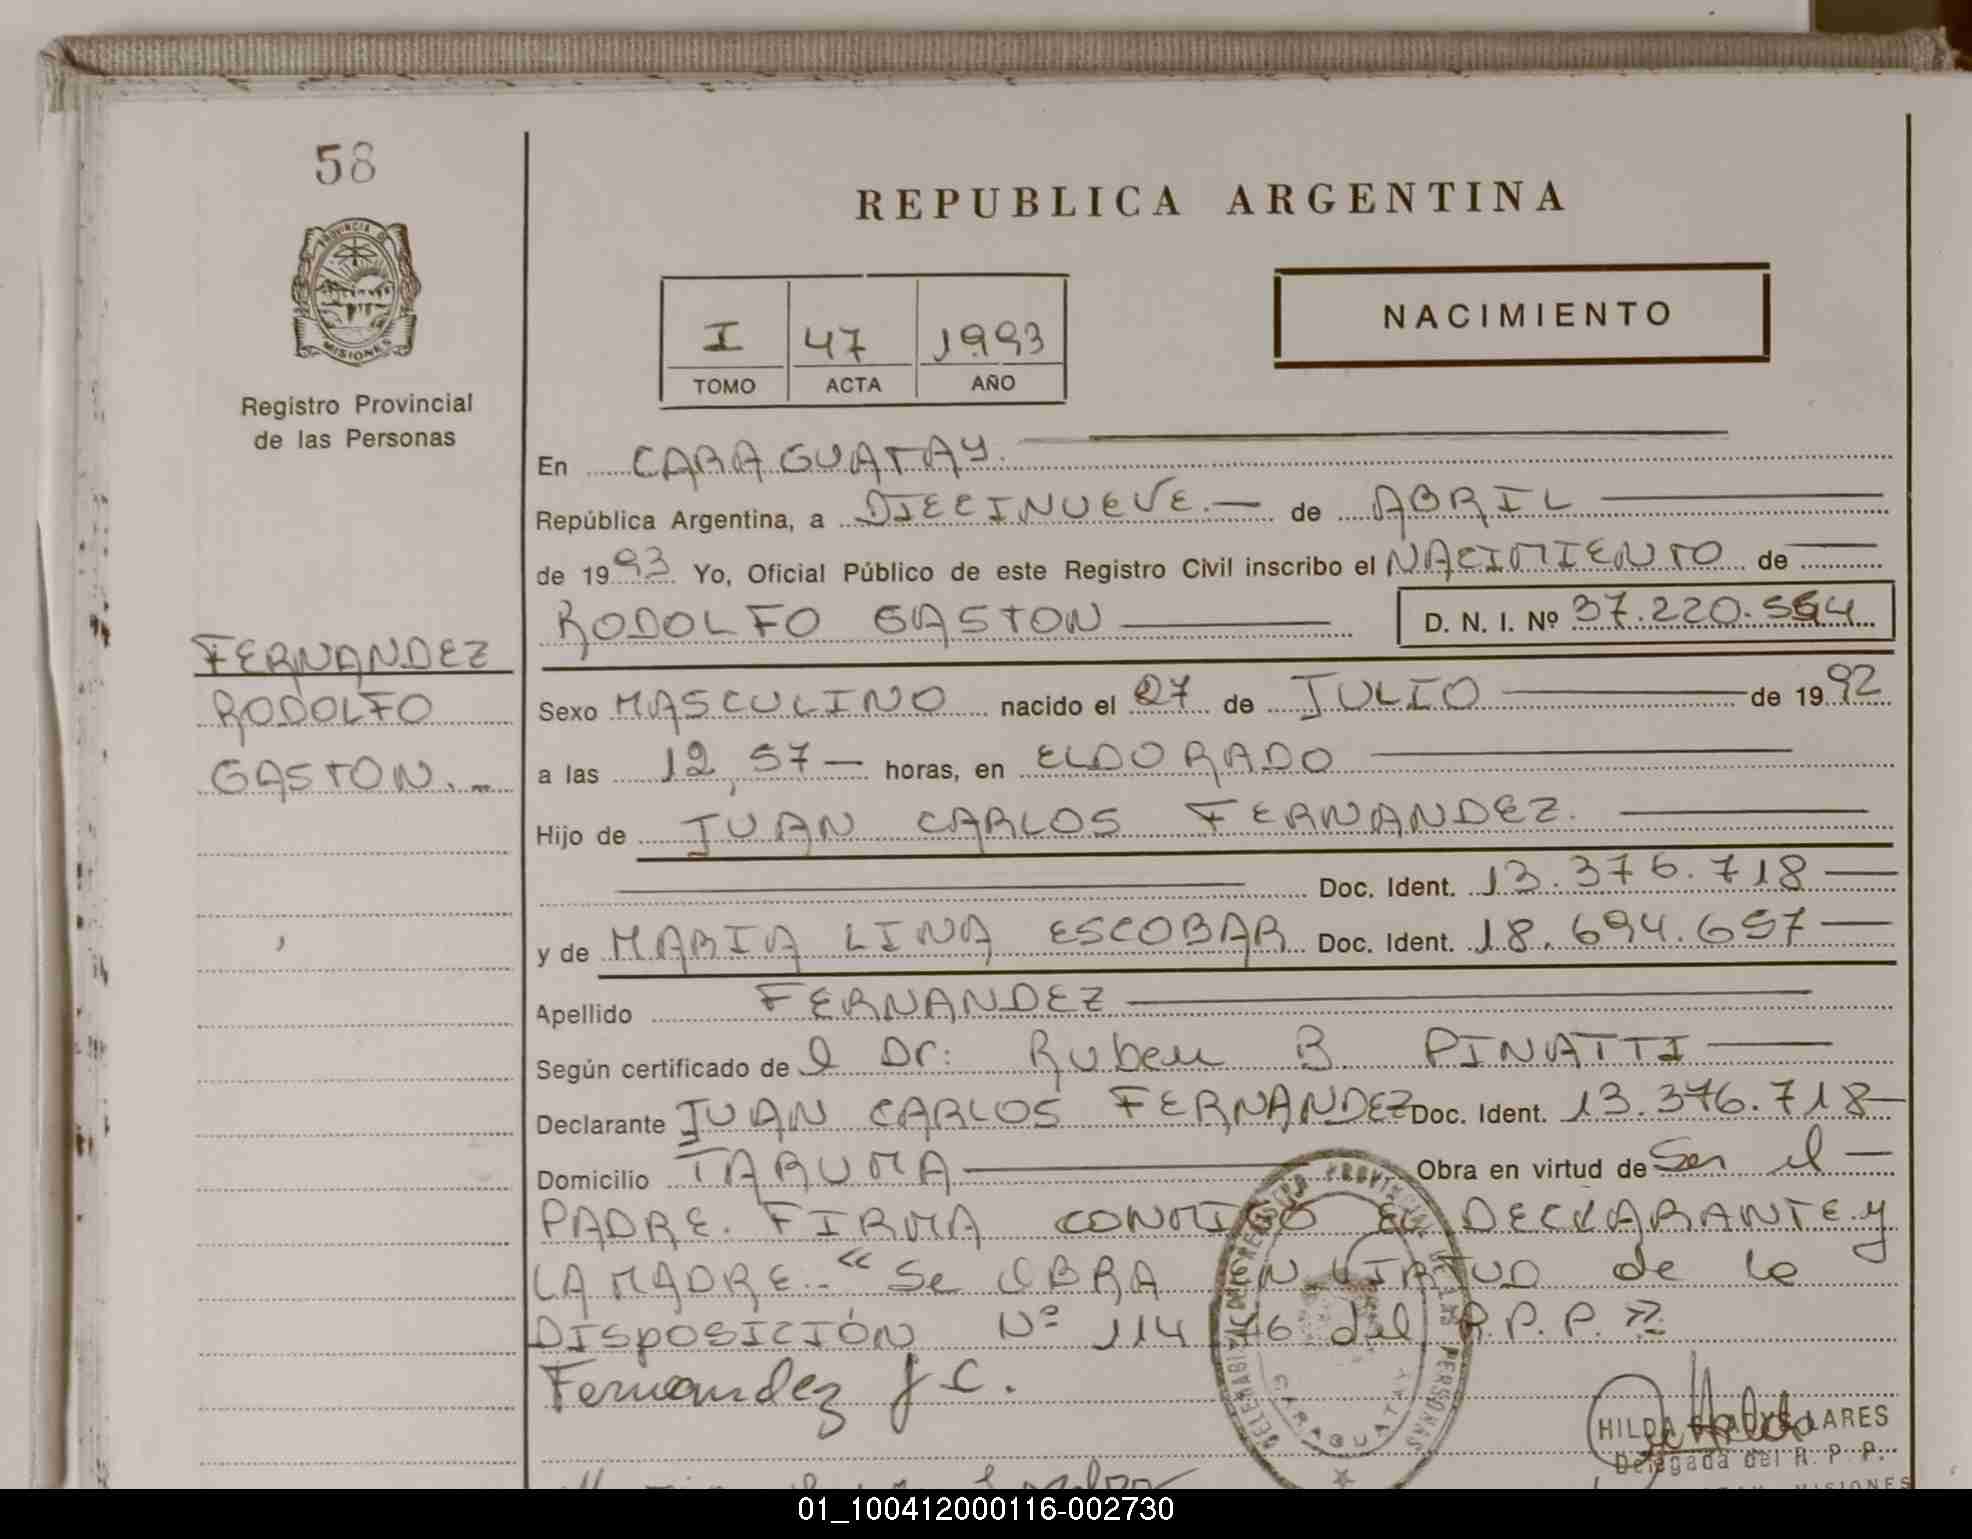 58
REPUBLICA ARGENTINA
PROVINCIA D MISIONES
Registro Provincial
de las Personas
I 47 1993
TOMO ACTA AÑO
NACIMIENTO
En CARAGUATAY.
República Argentina, a DIECINUEVE.— de ABRIL
de 1993 Yo, Oficial Público de este Registro Civil inscribo el NACIMIENTO de
RODOLFO GASTON D. N. I. Nº 37.220.554
FERNANDEZ
RODOLFO
GASTON.-
Sexo MASCULINO nacido el 27 de JULIO de 1992
a las 12,57— horas, en ELDORADO
Hijo de JUAN CARLOS FERNANDEZ.
Doc. Ident. 13.376.718—
y de MARIA LINA ESCOBAR Doc. Ident. 18.694.657—
Apellido FERNANDEZ
Según certificado de l Dr: Ruben B PINATTI
Declarante JUAN CARLOS FERNANDEZ Doc. Ident. 13.376.718—
Domicilio TARUMA Obra en virtud de Ser el —
PADRE. FIRMA CONMIGO EL DECLARANTE y
LA MADRE.. "Se OBRA EN VIRTUD de la
DISPOSICIÓN Nº 114 76 del R.P.P."
Fernandez J C.
REGISTRO PROVINCIAL DE LAS PERSONAS
CARAGUATAY
HILDA LARES
Delegada del R. P. P.
MISIONES
01_100412000116-002730